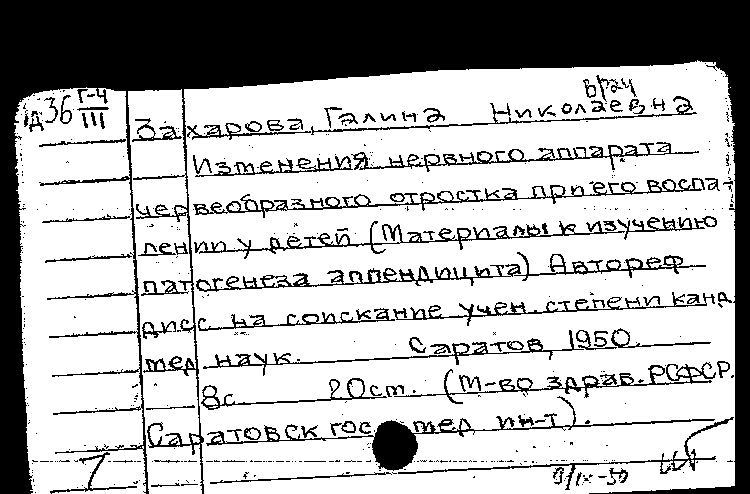 врач
Д36 Г-4
III
Захарова, Галина Николаевна
Изменения нервного аппарата
червеобразного отростка при его воспа-
лении у детей (Материалы к изучению
патогенеза аппендицита) Автореф
дисс на соискание учен. степени канд
мед наук. Саратов, 1950.
8с 20см. (М-во здрав. РСФСР.
Саратовск гос мед ин-т).
9/IX-50